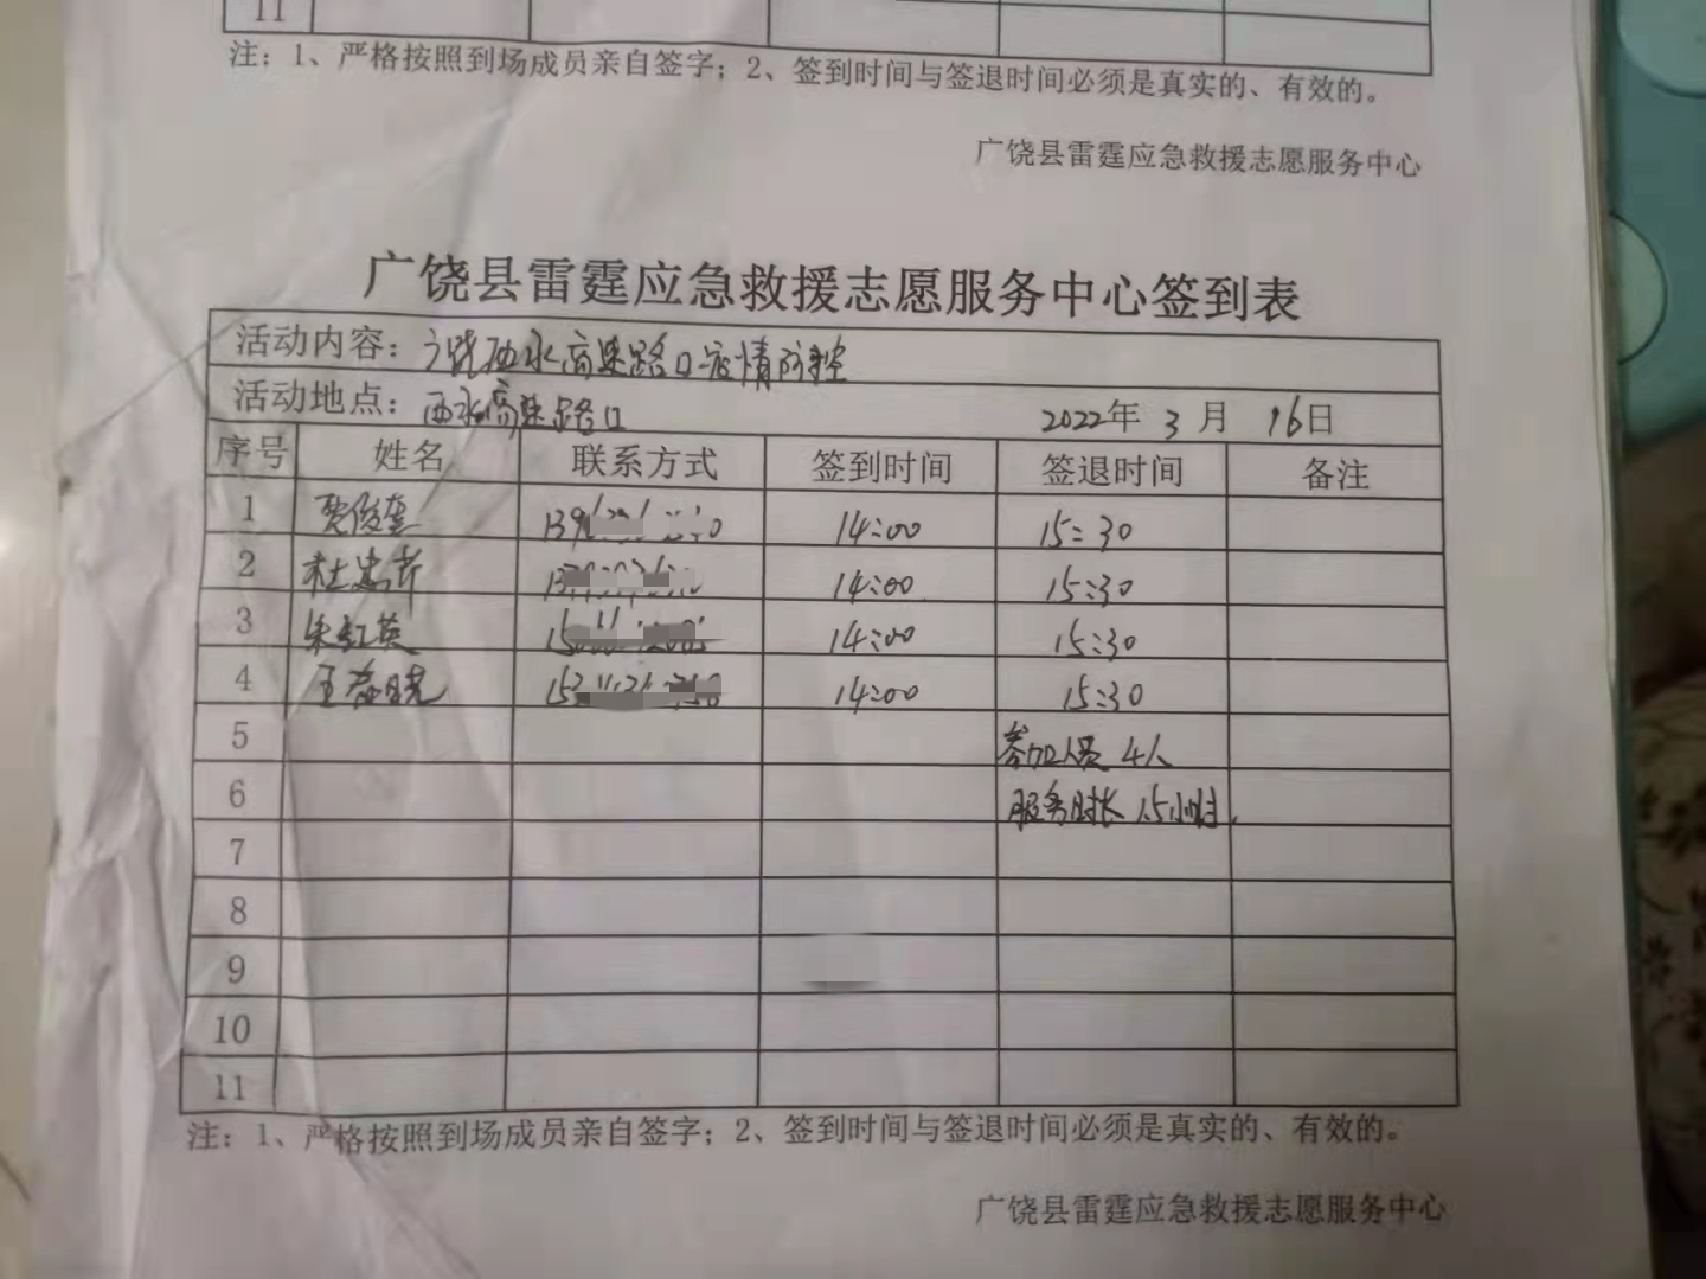 11
注：1、严格按照到场成员亲自签字；2、签到时间与签退时间必须是真实的、有效的。
广饶县雷霆应急救援志愿服务中心
广饶县雷霆应急救援志愿服务中心签到表
活动内容：广饶西水高速路口疫情防控
活动地点：西水高速路口 2022年 3月 16日
序号 姓名 联系方式 签到时间 签退时间 备注
1 14:00 15:30
2 14:00 15:30
3 朱红英 14:00 15:30
4 王春晓 14:00 15:30
5 参加人员 4人
6 服务时长 1.5小时.
7
8
9
10
11
注：1、严格按照到场成员亲自签字；2、签到时间与签退时间必须是真实的、有效的。
广饶县雷霆应急救援志愿服务中心